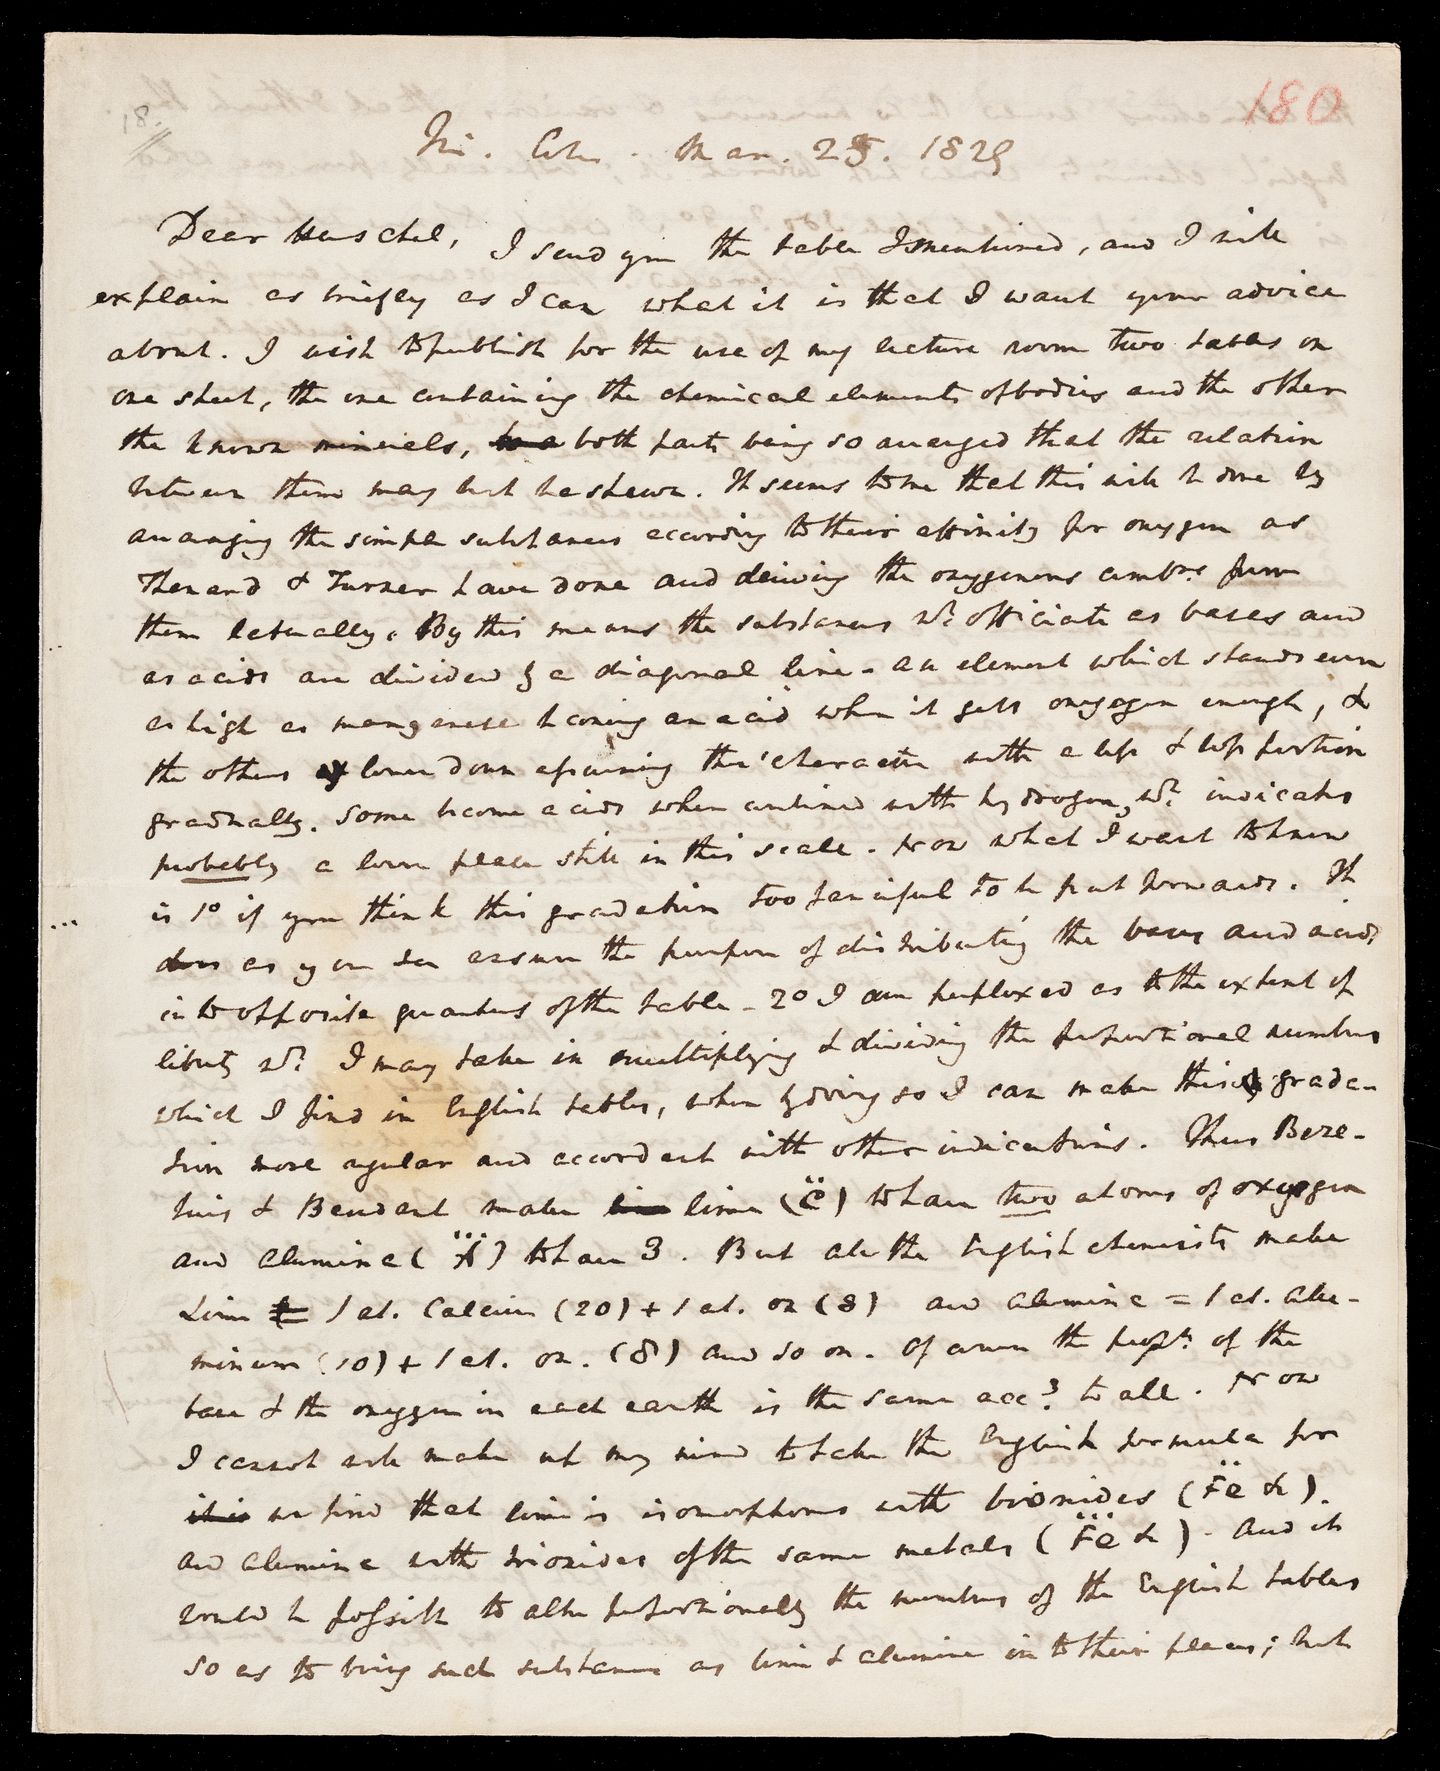 180
18.
Tri. Coll. Mar. 25. 1829
Dear Herschel, I send you the table I mentioned, and I will
explain as briefly as I can what it is that I want your advice
about. I wish to publish for the use of my lecture room two tables on
one sheet, the one containing the chemical elements of bodies and the other
the known minerals, both parts being so arranged that the relation
between them may best be shewn. It seems to me that this will be done by
arranging the simple substances according to their affinity for oxygen as
Thenard & Turner have done and deriving the oxygenous combns. from
them laterally. By this means the substances wh. officiate as bases and
as acids are divided by a diagonal line - an element which stands even
as high as manganese becoming an acid when it gets oxygen enough, &
the others lower down assuming this character with a less & less portion
gradually. Some become acids when combined with hydrogen, wh. indicates
probably a lower place still in this scale. Now what I want to know
is 1o if you think this gradation too fanciful to be put forwards. It
does as you see answer the purpose of distributing the bases and acids
into opposite quarters of the table - 2o I am perplexed as to the extent of
liberty wh. I may take in multiplying & dividing the proportional numbers
which I find in English tables, when by doing so I can make this grada-
tion more regular and accordant with other indications. Thus Berze-
lius & Beudant make lime (C̈) to have two atoms of oxygen
and alumine (A⃛) to have 3. But all the English chemists make
Lime = 1 at. Calcium (20) + 1 at. ox (8) and alumine = 1 at. Alu-
minum (10) + 1 at. ox. (8) and so on. Of course the propn. of the
base & the oxygen in each earth is the same accg. to all. Now
I cannot well make up my mind to take the English formula for
it is we find that lime is isomorphous with bioxides (F̈e &c).
and alumine with trioxides of the same metals (F⃛e &c) - And it
would be possible to alter proportionally the numbers of the English tables
so as to bring such substances as lime & alumine into their places; but